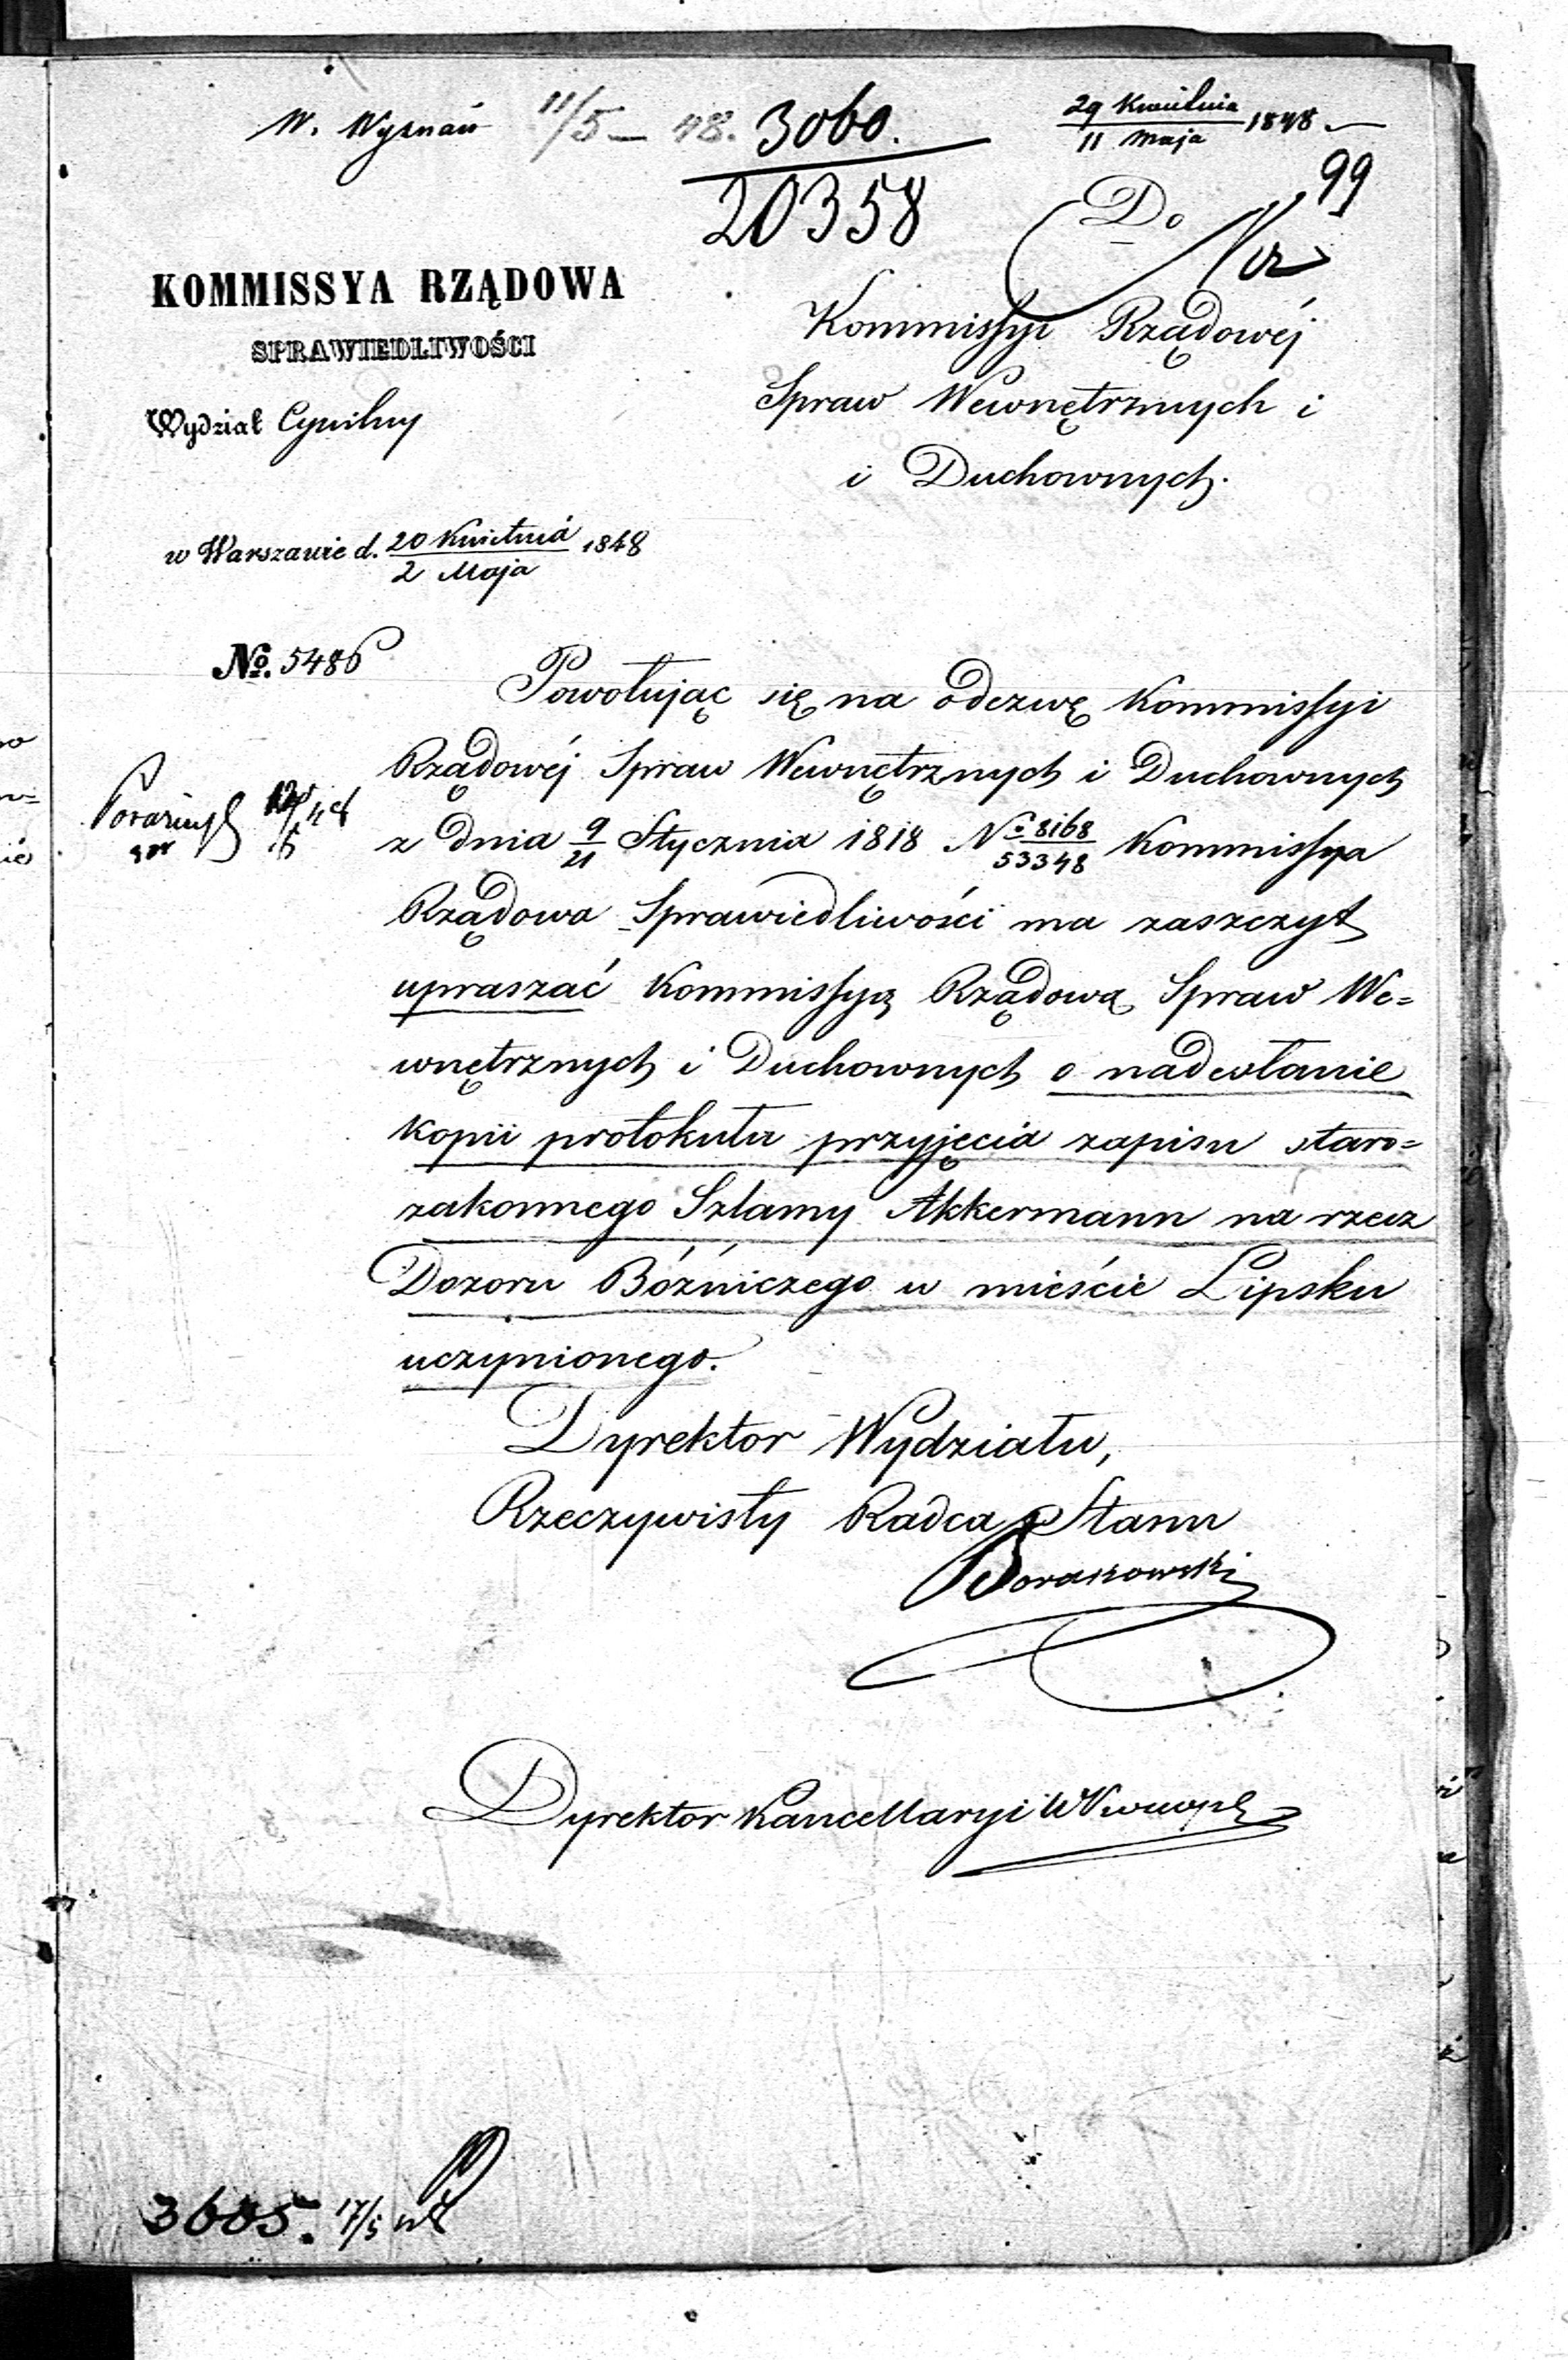 W. Wyznań 11/5 – 48. 3060.
20358
29 Kwietnia
11 Maja 1848
99
Do
KOMMISSYA RZĄDOWA
SPRAWIEDLIWOŚCI
Wydział Cywilny
Kommissyi Rządowéj
Spraw Wewnętrznych i
i Duchownych.
w Warszawie d. 20 Kwietnia
2 Maja 1848
No. 5486
Powołując się na odezwę Kommissyi
Rządowéj Spraw Wewnętrznych i Duchownych
z dnia 9/21 Stycznia 1818 No 8168/53348 Kommissya
Rządowa Sprawiedliwości ma zaszczyt
upraszać Kommissyą Rządową Spraw We=
wnętrznych i Duchownych o nadesłanie
kopii protokułu przyjęcia zapisu staro=
zakonnego Szlamy Akkermann na rzecz
Dozoru Bóźniczego w mieście Lipsku
uczynionego.
Dyrektor Wydziału,
Rzeczywisty Radca Stanu
Dyrektor Kancellaryi
3605. 17/5